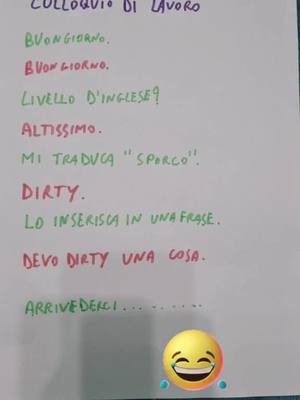 COLLOQUIO DI LAVORO
BUONGIORNO.
BUONGIORNO.
LIVELLO D'INGLESE?
ALTISSIMO.
MI TRADUCA "SPORCO".
DIRTY.
LO INSERISCA IN UNA FRASE.
DEVO DIRTY UNA COSA.
ARRIVEDERCI..........